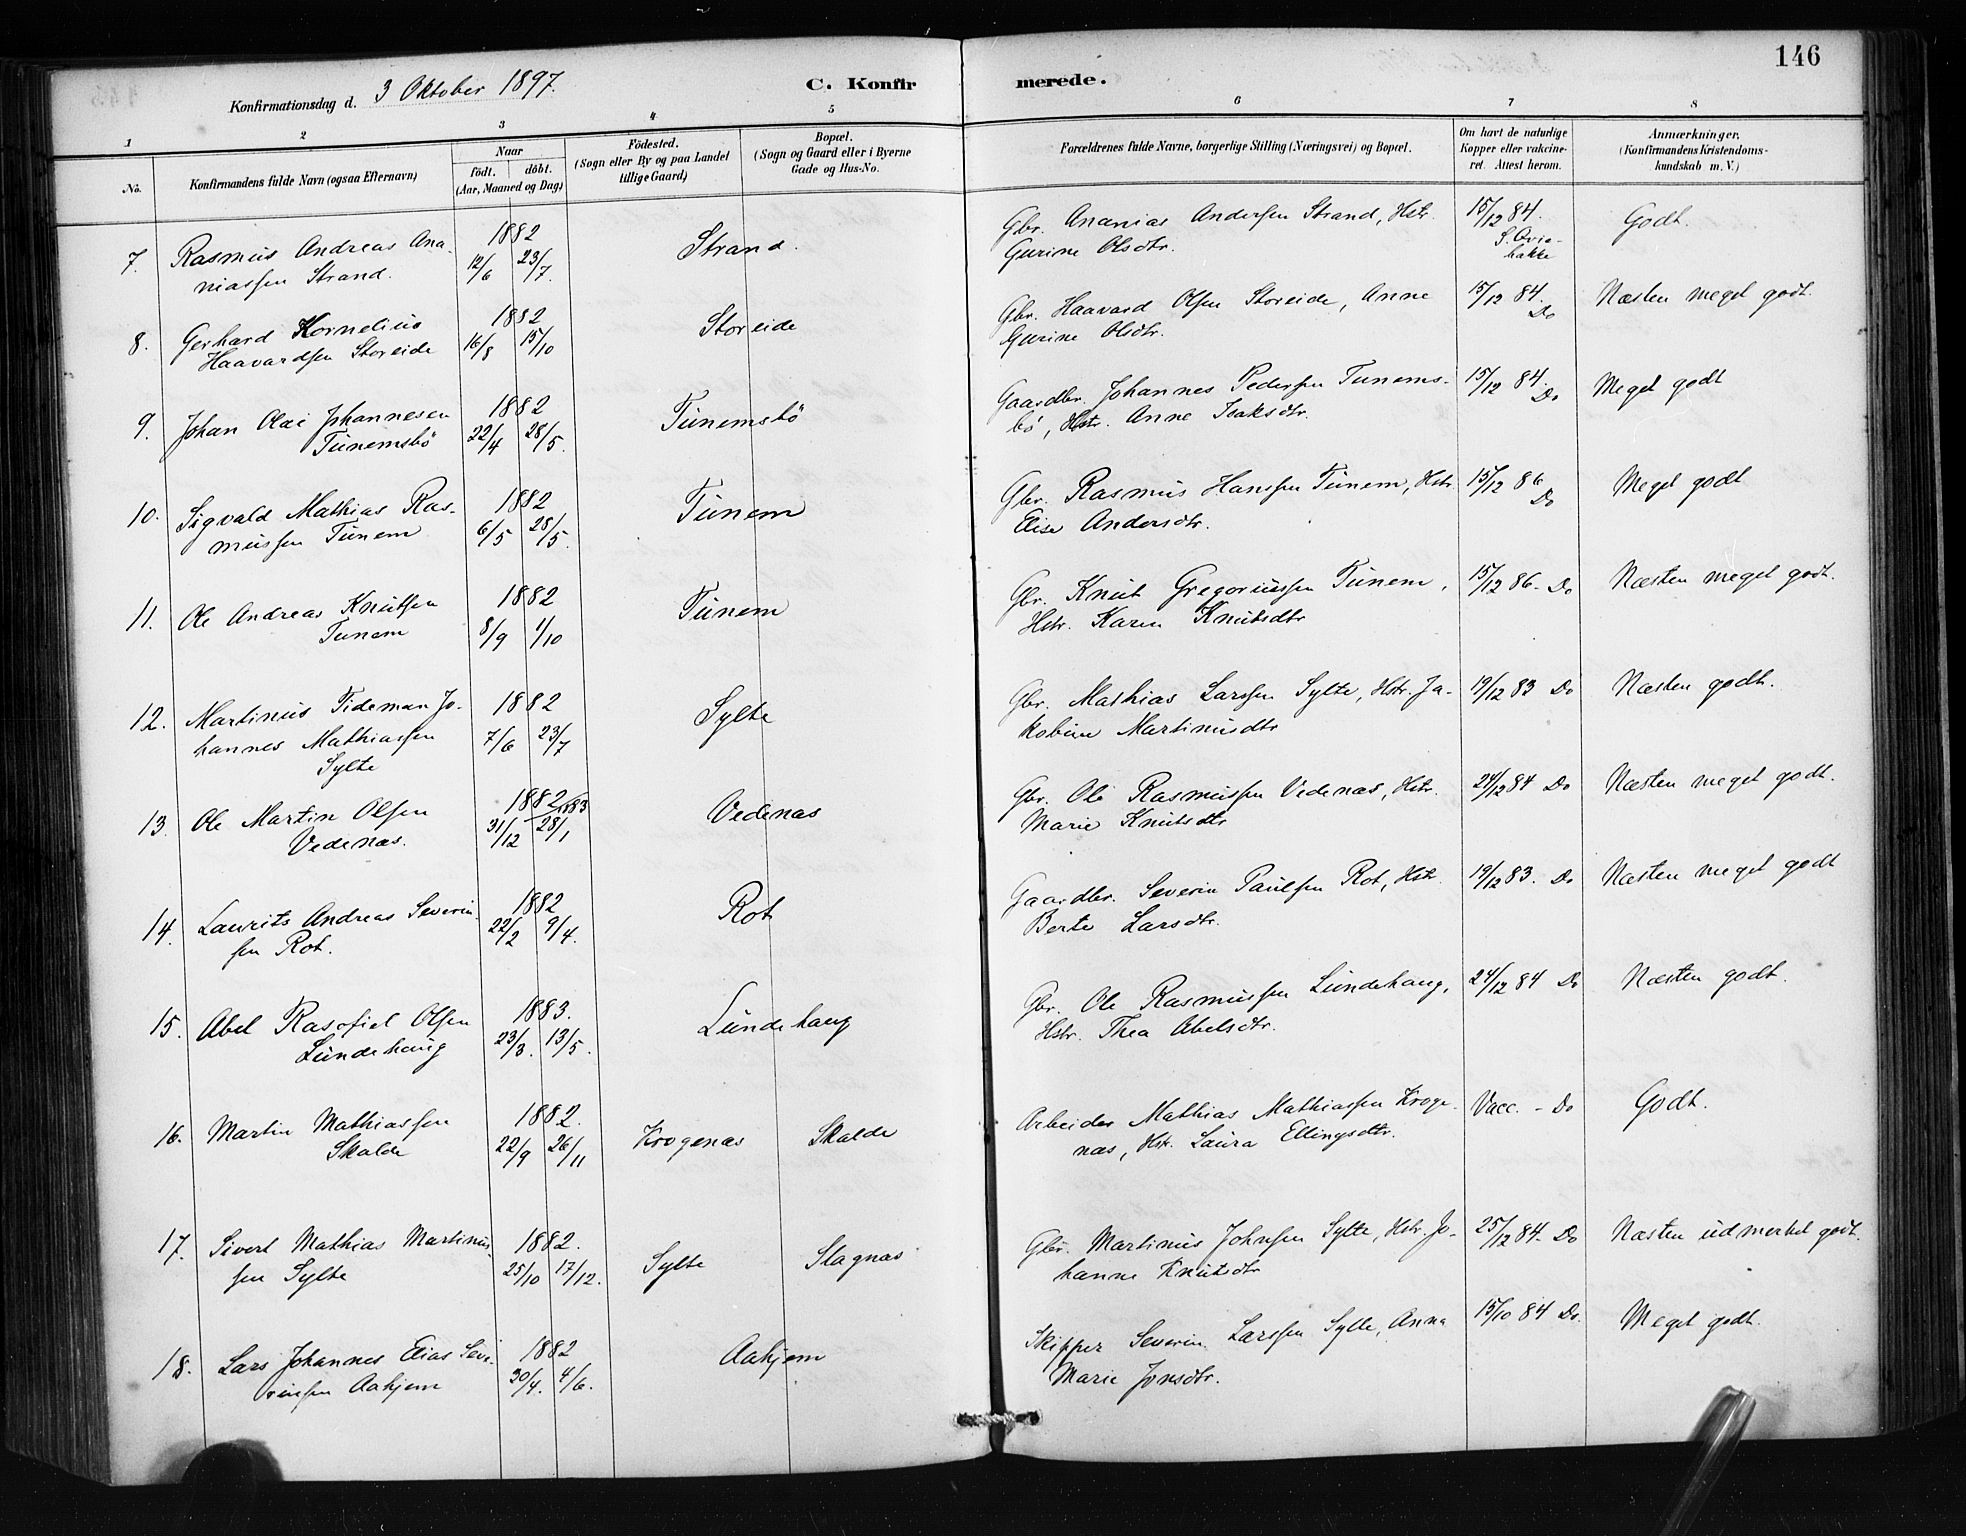 146
Konfirmationsdag d. 3 Oktober 1897.
C. Konfirmerede.
1 2 3 4 5 6 7 8
No.
Konfirmandens fulde Navn (ogsaa Efternavn)
Naar
födt. döbt.
(Aar, Maaned og Dag)
Födested.
(Sogn eller By og paa Landet
tillige Gaard)
Bopæl.
(Sogn og Gaard eller i Byerne
Gade og Hus-No.
Forældrenes fulde Navne, borgerlige Stilling (Næringsvei) og Bopæl.
Om havt de naturlige
Kopper eller vakcine-
ret. Attest herom.
Anmærkninger.
(Konfirmandens Kristendoms-
kundskab m. V.)
7. Rasmus Andreas Ana- 1882 Strand. Gbr. Ananias Andersen Strand, Hstr. 15/12 84. Godt.
niassen Strand. 12/6 23/7. Gurine Olsdtr.
8. Gerhard Kornelius 1882 Storeide Gbr. Haavard Olsen Storeide, Anne 15/12 84. Do Næsten meget godt.
Haavardsen Storeide 16/8 15/10 Gurine Olsdtr.
9. Johan Olai Johannesen 1882 Tunemsbö Gaardbr. Johannes Pedersen Tunems- 15/12 84. Do Meget godt
Tunemsbö 22/4 28/5. bö, Hstr. Anne Isaksdtr.
10. Sigvald Mathias Ras- 1882 Tunem Gbr. Rasmus Hanssen Tunem, Hstr. 15/12 86 Do Meget godt
mussen Tunem 6/5 28/5. Elise Andersdtr.
11. Ole Andreas Knutsen 1882 Tunem Gbr. Knut Gregoriussen Tunem, 15/12 86 - Do Næsten meget godt.
Tunem 8/9 1/10 Hstr. Karen Knutsdtr
12. Martinus Tideman Jo- 1882 Sylte Gbr. Mathias Larssen Sylte, Hstr. Ja- 19/12 83 Do Næsten godt.
hannes Mathiassen 7/6 23/7 kobine Martinusdtr
Sylte
13. Ole Martin Olsen 1882 1883 Vedenæs Gbr. Ole Rasmussen Vedenæs, Hstr. 24/12 84 Do Næsten meget godt.
Vedenæs. 31/12 28/1 Marie Knutsdtr
14. Laurits Andreas Severin- 1882 Rot Gaardbr. Severin Paulsen Rot, Hstr. 19/12 83. Do Næsten meget godt
sen Rot. 22/2 9/4. Berte Larsdtr.
15. Abel Rasofiel Olsen 1883. Lundehaug Gbr. Ole Rasmussen Lundehaug, 24/12 84 Do Næsten godt.
Lundehaug 23/3. 13/5. Hstr. Thea Abelsdtr.
16. Martin Mathiassen 1882. Krogenæs Skalde Arbeider Mathias Mathiassen Kroge- Vacc. - Do Godt.
Skalde 22/9 26/11 næs, Hstr. Laura Ellingsdtr.
17. Sivert Mathias Martinus- 1882. Sylte Slagnæs Gbr. Martinus Johnsen Sylte, Hstr. Jo- 25/12 84 - Do Næsten udmerket godt.
sen Sylte 25/10 17/12. hanne Knutsdtr
18. Lars Johannes Elias Seve- 1882 Aahjem Skipper Severin Larssen Sylte, Anna 15/10 84 Do. Meget godt.
rinsen Aahjem 30/4. 4/6. Marie Jonsdtr.